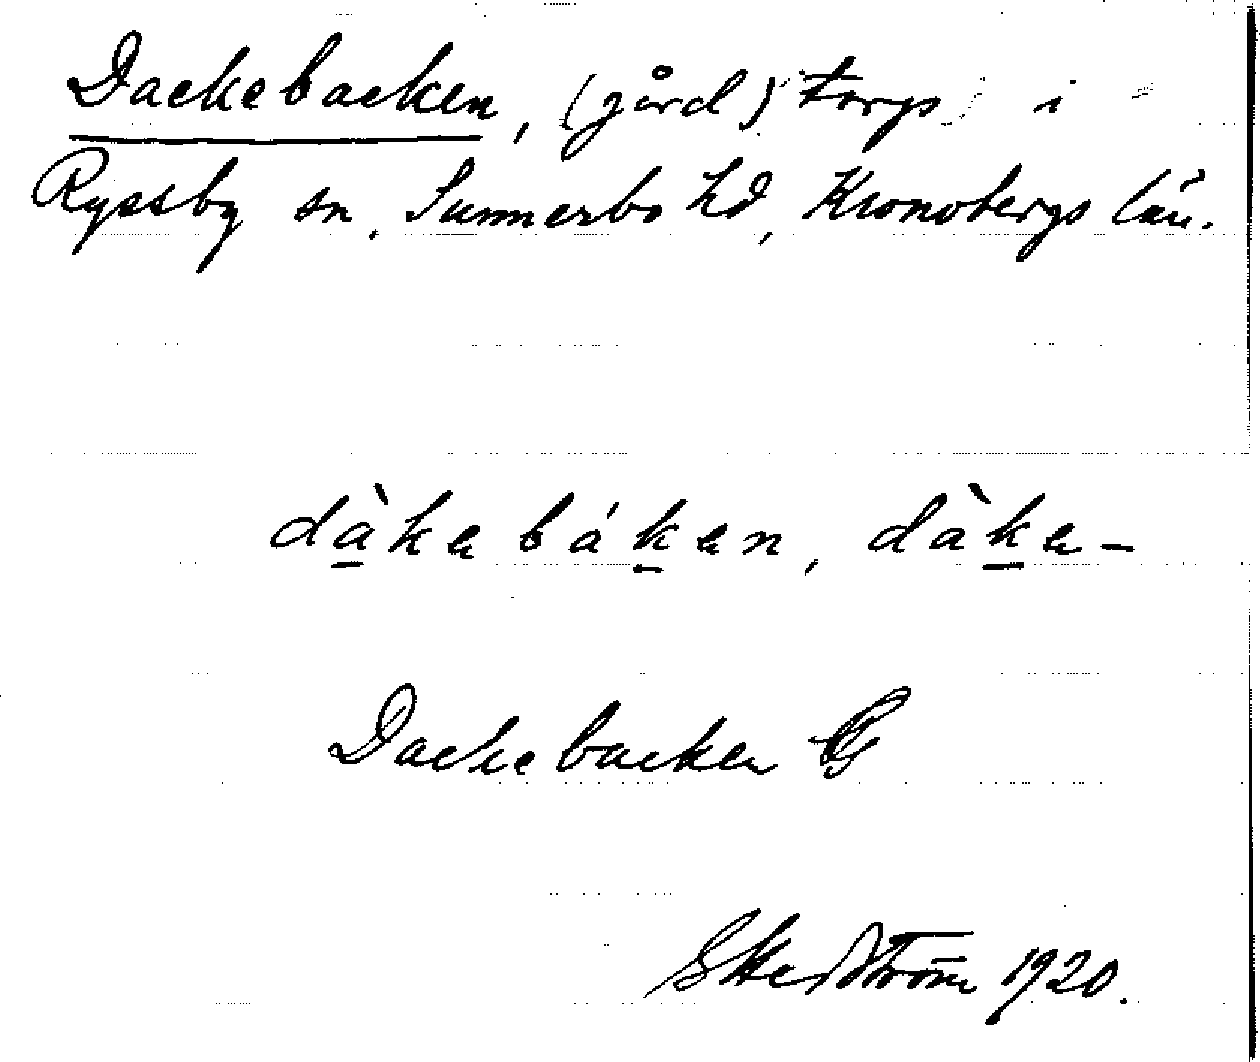 Dackebacken, (gård) torp i
Ryssby sn, Sunnerbo hd, Kronobergs län.
dàkebáken, dàke-
Dackebacken G
G Hedström 1920.